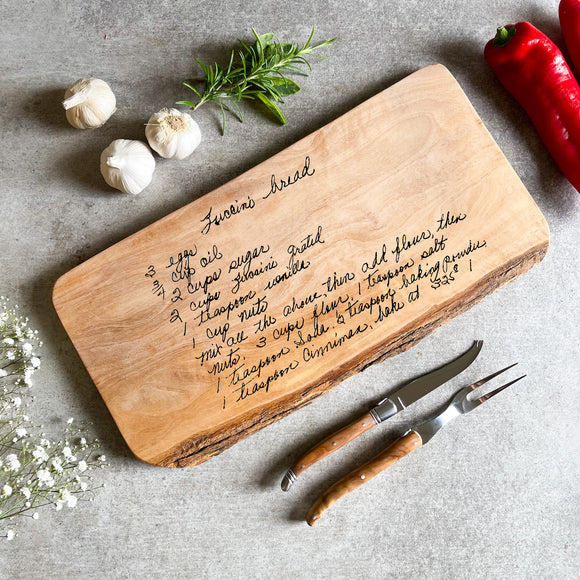 Zuccini bread
3 eggs
3/4 cup oil
2 cups sugar
2 cups Zussini grated
1 teaspoon vanilla
1 cup nuts
mix all the above, then add flour, then
nuts, 3 cups flour, 1 teaspoon salt
1 teaspoon Soda, 2 teaspoon baking powder,
1 teaspoon Cinnimon, bake at 325° 1